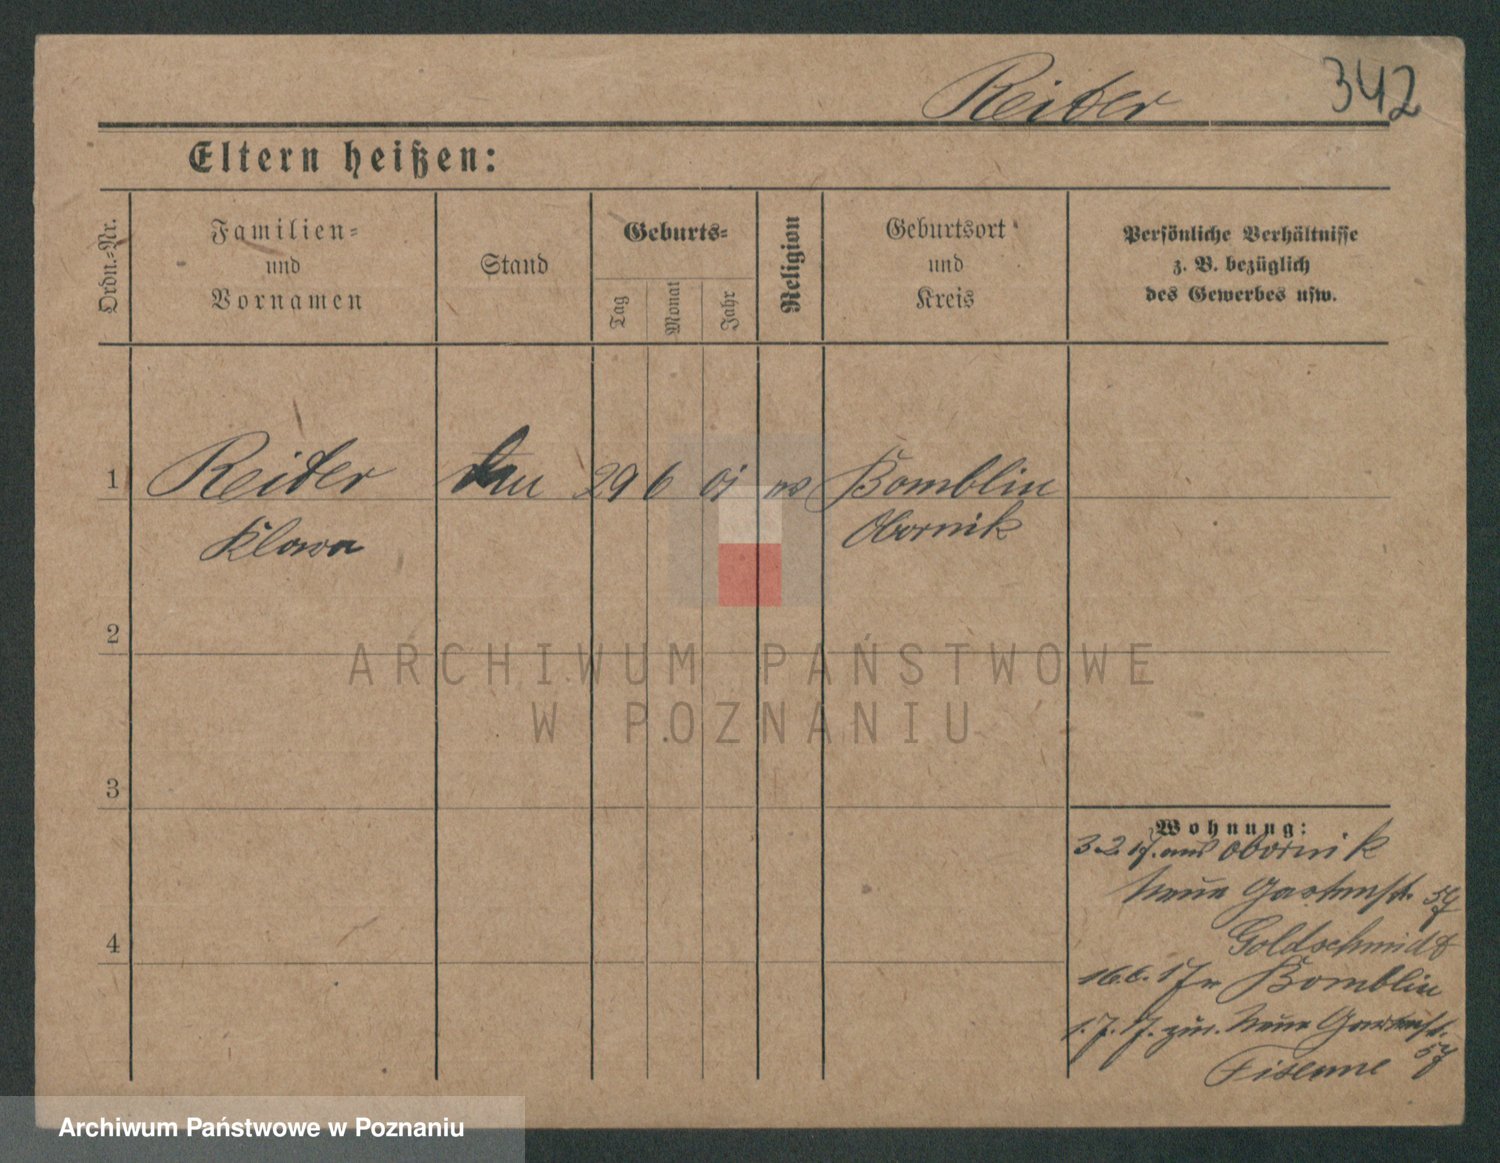 342
Reiter
Eltern heißen:
Ordn.-Nr.
Familien-
und
Vornamen
Stand
Geburts-
Tag
Monat
Jahr
Religion
Geburtsort
und
Kreis
Persönliche Verhältnisse
z. B. bezüglich
des Gewerbes usw.
1
Reiter 29 6 01 Bomblin
Klara Obornik
2
ARCHIWUM PAŃSTWOWE
W POZNANIU
3
4
Wohnung:
3.2.17. aus Obornik
Neue Gartenst. 59
Goldschmidt
16.6.17 n Bomblin
1.7.17. zur. Neue Gartenst.
59
Archiwum Państwowe w Poznaniu